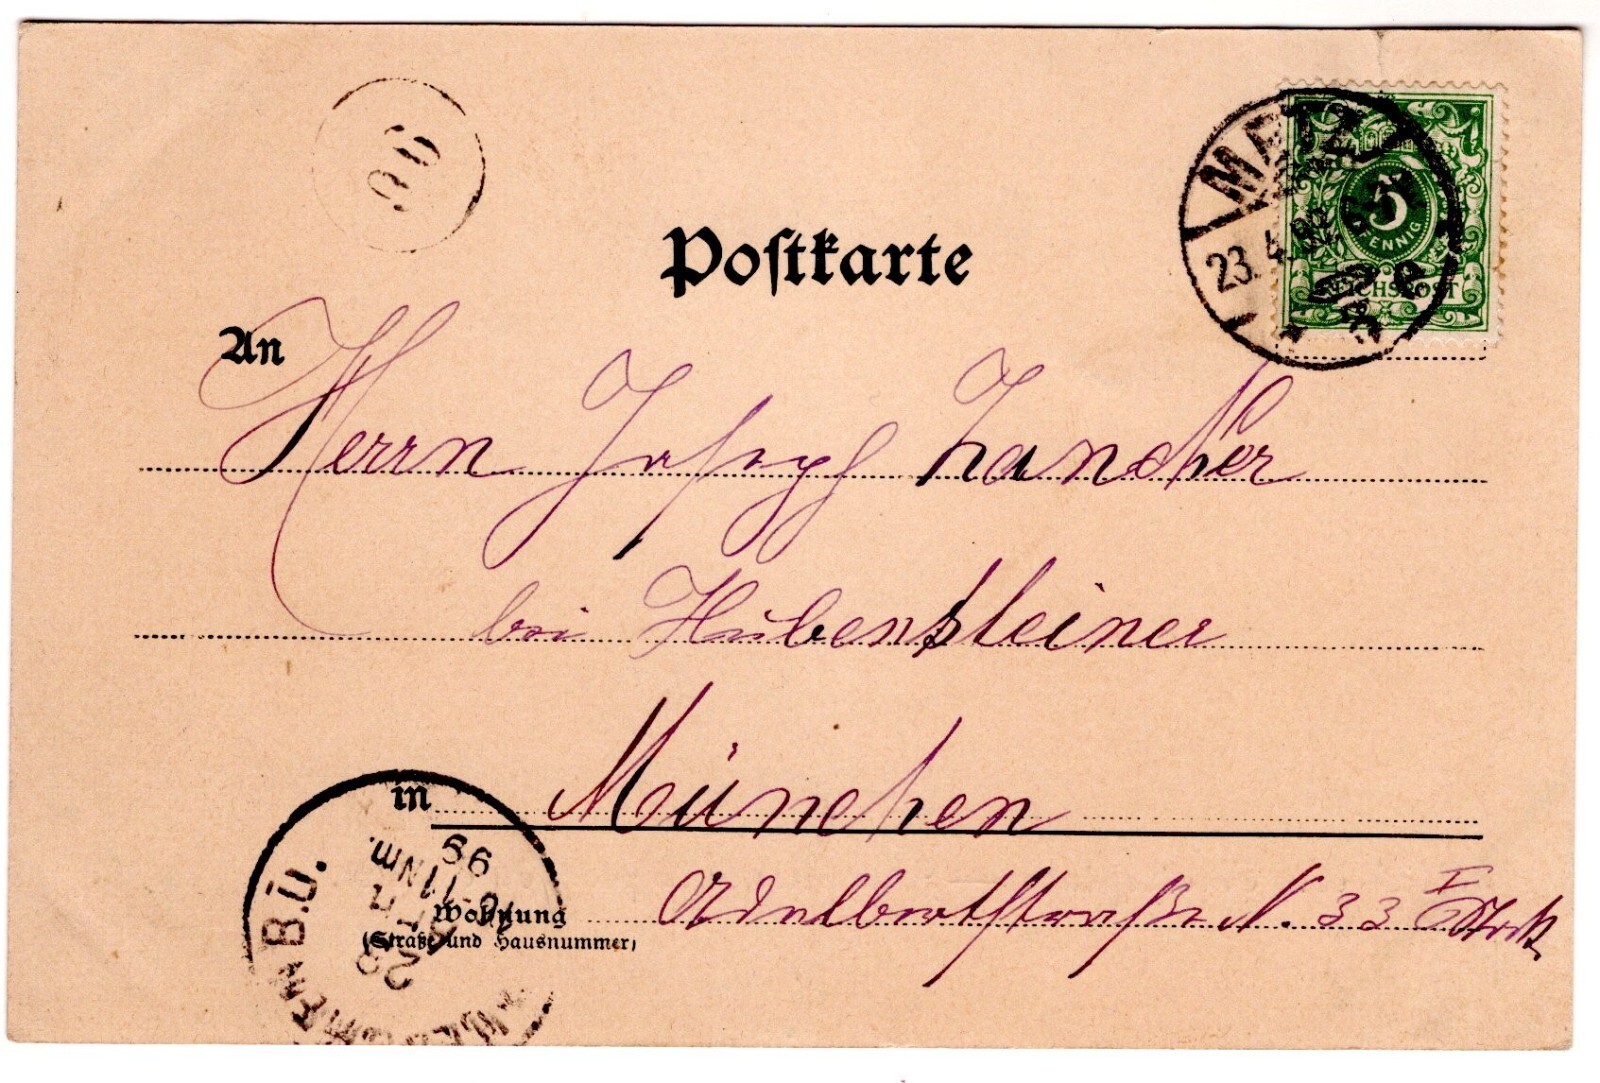 90
Postkarte
METZ
23.4.99
5
PFENNIG
REICHSPOST
An
Herrn Joseph Zancher
bei Hubensteiner
in München
Wohnung
(Straße und Hausnummer)
Adelbertstraße N. 33 I Stock
B.Ü.
23
11 Nm.
99